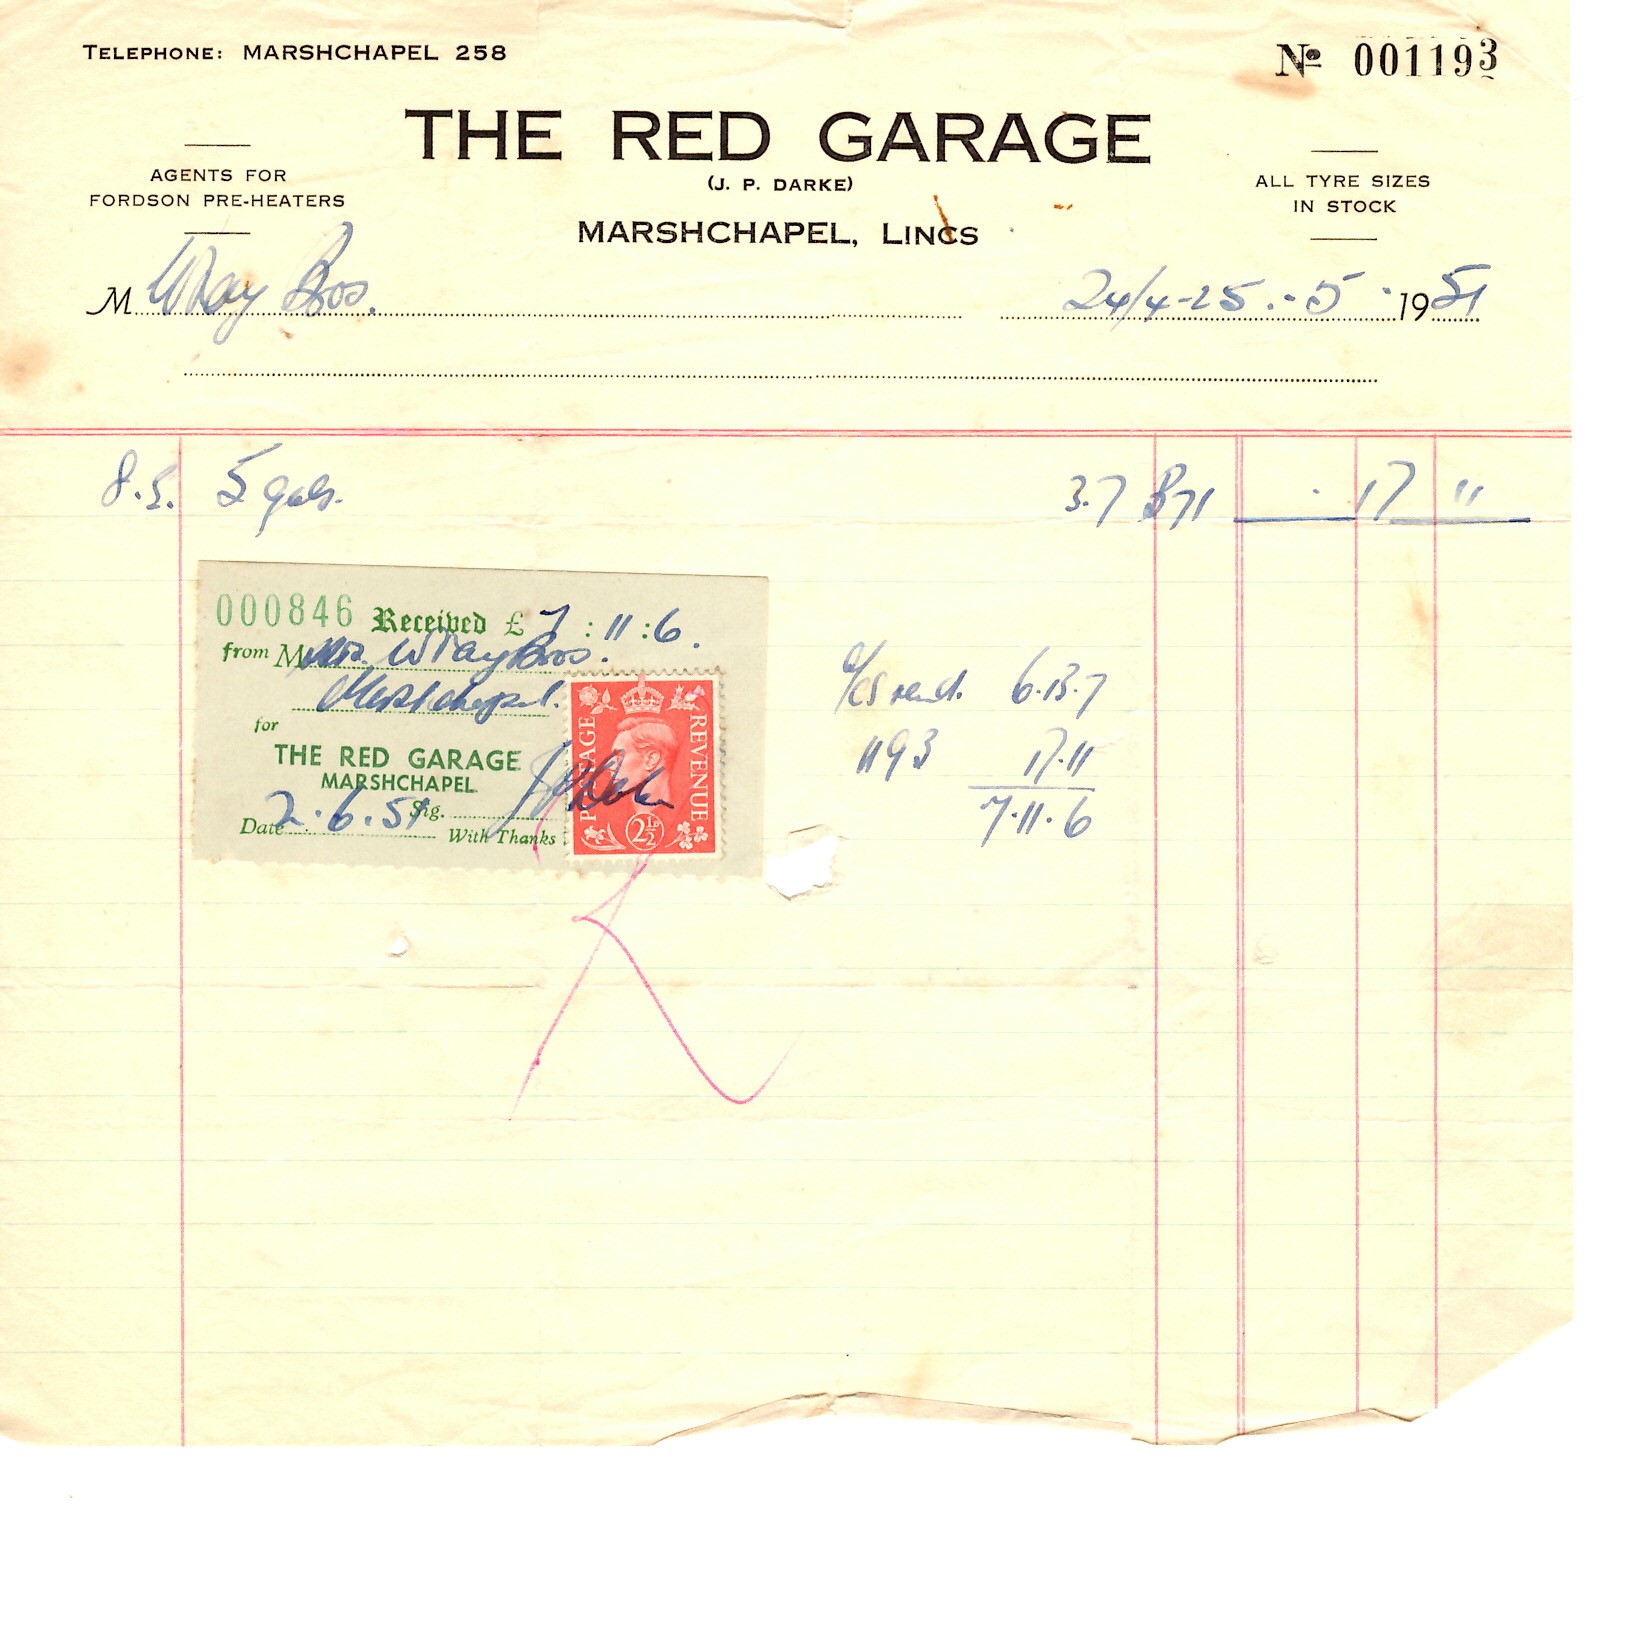 TELEPHONE: MARSHCHAPEL 258
Nº 001193
THE RED GARAGE
(J. P. DARKE)
MARSHCHAPEL, LINCS
AGENTS FOR
FORDSON PRE-HEATERS
ALL TYRE SIZES
IN STOCK
M Wray Bros. 24/4-25.-5.1951
8.5. 5 gals. 3.7 B71 . 17 11
000846 Received £ 7:11:6.
from M Wray Bros.
Marshchapel.
for
THE RED GARAGE
MARSHCHAPEL
Sig.
Date 2.6.51 With Thanks
POSTAGE REVENUE
2½D
a/cs rend. 6.13.7
1193 17.11
7.11.6